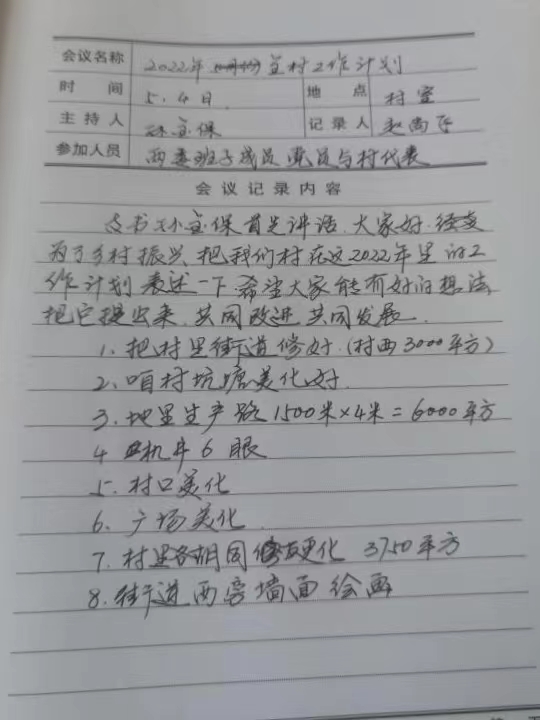 会议名称 2022年全村工作计划
时间 5.4日. 地点 村室
主持人 孙宝保 记录人 赵尚
参加人员 两委班子成员 党员与村代表
会议记录内容
支书孙宝保首先讲话.大家好.
为了乡村振兴 把我们村在这2022年里的工
作计划表述一下.希望大家能有好的想法
把它提出来.共同改进 共同发展.
1、把村里街道修好.(村西3000平方)
2、咱村坑塘美化好.
3、地里生产路1500米×4米=6000平方
4 机井6眼
5、村口美化
6、广场美化.
7、村里各胡同硬化 3750平方
8、街道两旁墙面绘画